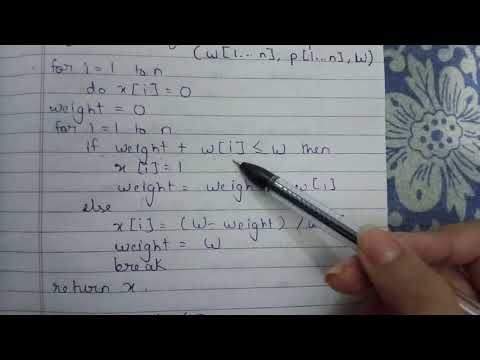 (w[1...n], p[1...n], w)
for i=1 to n
do x[i]=0
weight = 0
for i=1 to n
if weight + w[i] ≤ W then
x[i]=1
weight = weigh w[i]
else
x[i]= (W- weight) /
weight = W
break
return x.